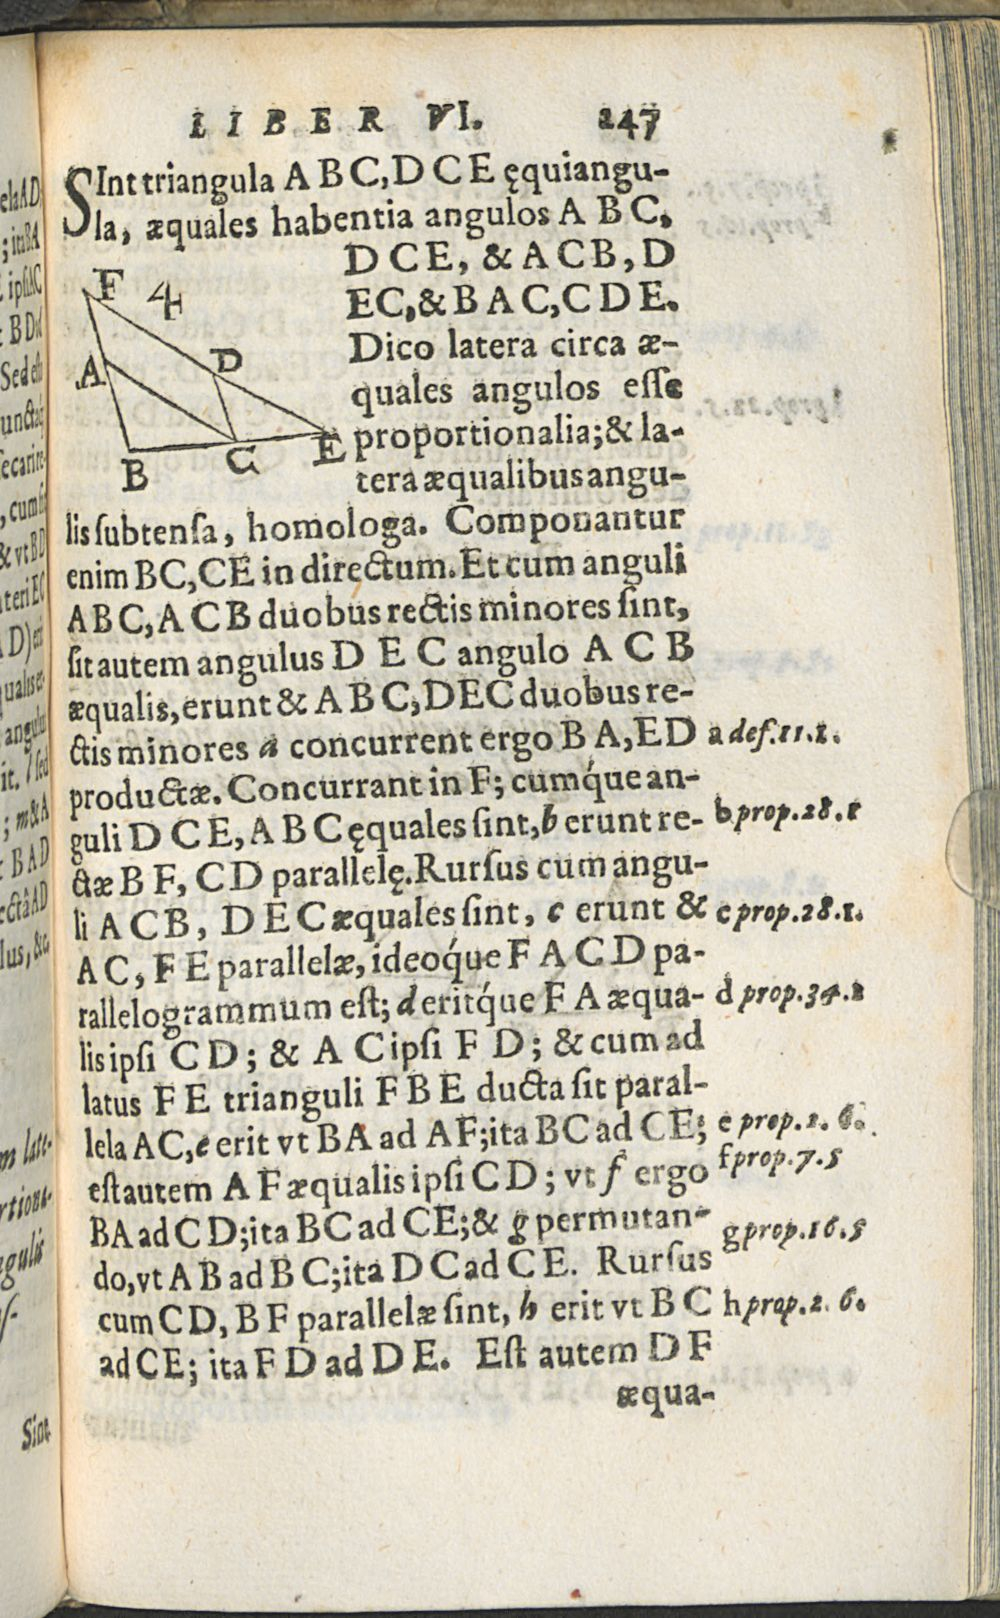 LIBER VI. 247
SInt triangula A B C, D C E ęquiangu-
la, æquales habentia angulos A B C,
D C E, & A C B, D
EC, & B A C, C D E.
Dico latera circa æ-
quales angulos esse
proportionalia; & la-
tera æqualibus angu-
F 4
A D
B C E
lis subtensa, homologa. Componantur
enim BC, CE in directum. Et cum anguli
ABC, A C B duobus rectis minores sint,
sit autem angulus D E C angulo A C B
æqualis, erunt & A B C, DEC duobus re-
ctis minores a concurrent ergo B A, ED a def. 11. 1.
productæ. Concurrant in F; cumq́ue an-
guli D C E, A B C ęquales sint, b erunt re- b prop. 28. 1
ctæ B F, C D parallelę. Rursus cum angu-
li A C B, D E C æquales sint, c erunt & c prop. 28. 1.
A C, F E parallelæ, ideoq́ue F A C D pa-
rallelogrammum est; d eritq́ue F A æqua- d prop. 34. 1
lis ipsi C D; & A C ipsi F D; & cum ad
latus F E trianguli F B E ducta sit paral-
lela AC, e erit vt BA ad AF; ita BC ad CE; e prop. 2. 6.
est autem A F æqualis ipsi C D; vt f ergo f prop. 7. 5
BA ad C D; ita BC ad CE; & g permutan-
do, vt A B ad B C; ita D C ad C E. Rursus g prop. 16. 5
cum C D, B F parallelæ sint, h erit vt B C h prop. 2. 6.
ad CE; ita F D ad D E. Est autem D F
æqua-
ela A D
; ita BA
ipsi AC
B D
Sed
, cum
& vt BD
teri EC
A D)
; m & A
B A D
ectâ AD
lus, &c.
Sint